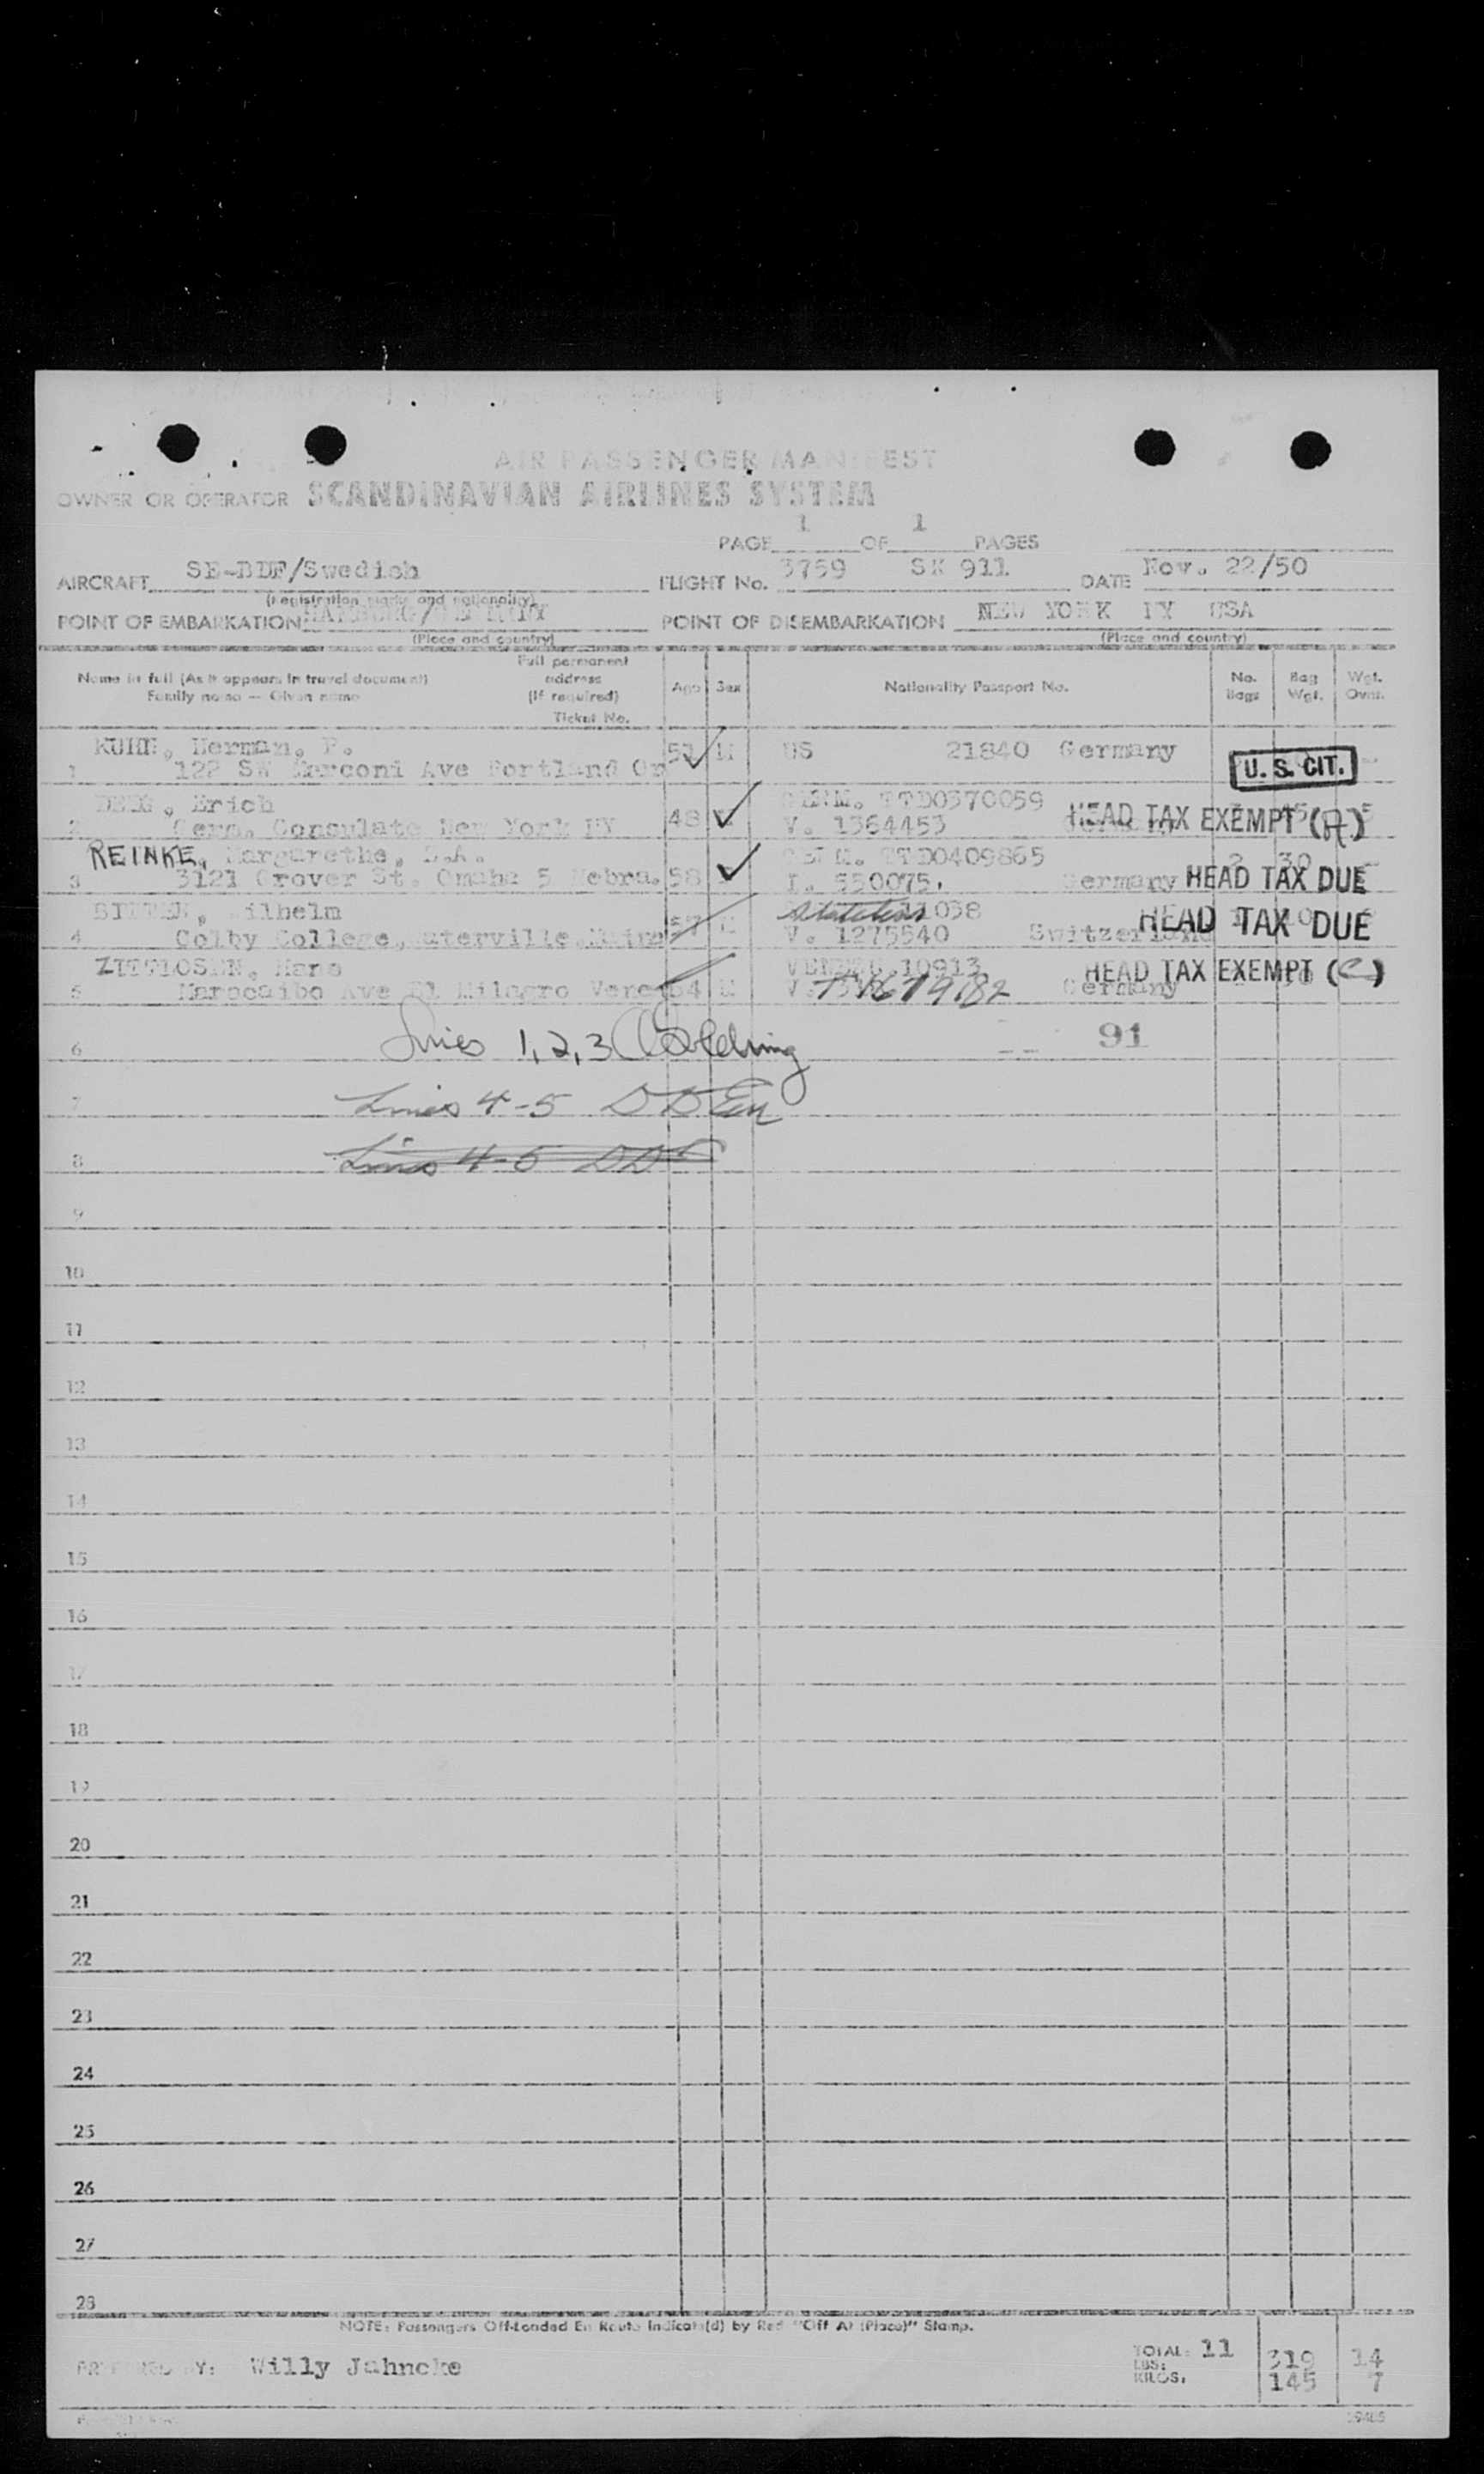 AIR PASSENGER MANIFEST
OWNER OR OPERATOR SCANDINAVIAN AIRLINES SYSTEM
PAGE 1 OF 1 PAGES
AIRCRAFT SE-BDF/Swedish FLIGHT No. 3759 SK 911 DATE Nov. 22/50
(Registration marks and nationality)
POINT OF EMBARKATION HAMBURG/GERMANY POINT OF DISEMBARKATION NEW YORK NY USA
(Place and country) (Place and country)
Name in full (As it appears in travel document) Family name — Given name Full permanent address (If required) Ticket No. Age Sex Nationality Passport No. No. Bags Bag Wgt. Wgt. Ovwt.
KUHN, Herman, F. 51 M US 21840 Germany U. S. CIT.
1 122 SW Marconi Ave Portland Or
Erich 48 GERM. TTD0370059
2 Germ. Consulate New York NY V. 1364453 HEAD TAX EXEMPT (A)
REINKE, Margarethe, 58 GERM. TTD0409865 2 30
3 3121 Grover St. Omaha 5 Nebra. I. 550075. Germany HEAD TAX DUE
Wilhelm 57 M Stateless
4 Colby College, Waterville Maine V. 1275540 Switzerland HEAD TAX DUE
ZITTLOSEN, Hans 54 M VENEZU 10913
5 Marocaibo Ave El Milagro Venez Germany HEAD TAX EXEMPT (C)
6 Lines 1, 2, 3 91
7 Lines 4-5
8 Lines 4-5 DD
9
10
11
12
13
14
15
16
17
18
19
20
21
22
23
24
25
26
27
28
NOTE: Passengers Off-Loaded En Route Indicat(d) by Red "Off At (Place)" Stamp.
PREPARED BY: Willy Jahncke TOTAL: 11
LBS: 319 14
KILOS. 145 7